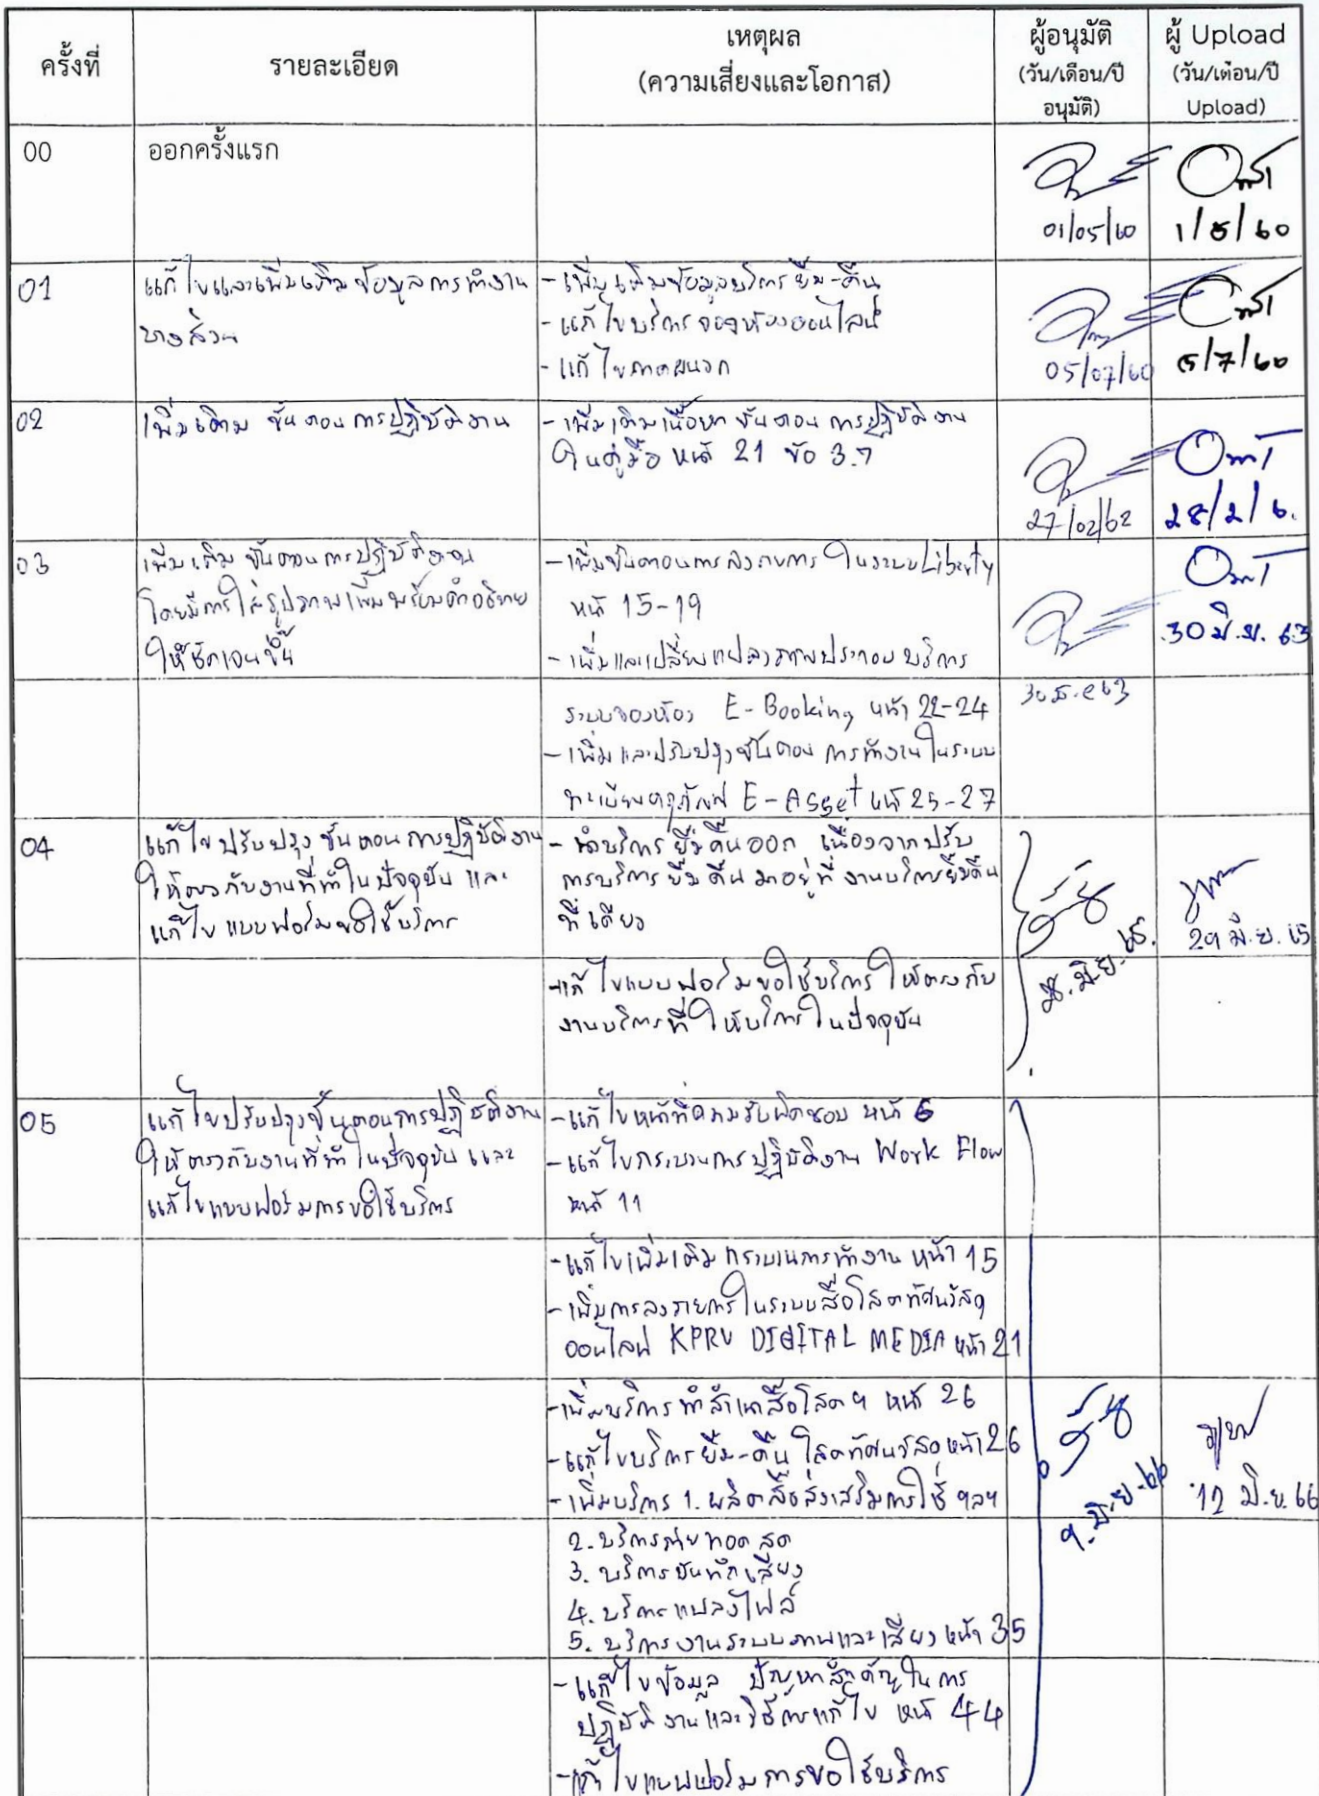 ครั้งที่
รายละเอียด
เหตุผล
(ความเสี่ยงและโอกาส)
ผู้อนุมัติ
(วัน/เดือน/ปี
อนุมัติ)
ผู้ Upload
(วัน/เดือน/ปี
Upload)
00
ออกครั้งแรก
01/05/60
1/5/60
01
แก้ไขและเพิ่มเติมข้อมูลการทำงาน
บางส่วน
- เพิ่มเติมข้อมูลบริการยืม-คืน
- แก้ไขบริการจองห้องออนไลน์
- แก้ไขภาคผนวก
05/07/60
5/7/60
02
เพิ่มเติม ขั้นตอนการปฏิบัติงาน
- เพิ่มเติมเนื้อหา ขั้นตอน การปฏิบัติงาน
ในคู่มือ หน้า 21 ข้อ 3.7
27/02/62
28/2/6
03
เพิ่มเติม ขั้นตอนการปฏิบัติงาน
โดยมีการใส่รูปภาพเพิ่มพร้อมคำอธิบาย
ให้ชัดเจนขึ้น
- เพิ่มขั้นตอนการลงรายการ ในระบบ Liberty
หน้า 15-19
- เพิ่มและเปลี่ยนแปลงภาพประกอบ บริการ
30 มิ.ย. 63
ระบบจองห้อง E-Booking หน้า 22-24
- เพิ่มและปรับปรุงขั้นตอน การทำงานในระบบ
ทะเบียนครุภัณฑ์ E-Asset หน้า 25-27
04
แก้ไขปรับปรุง ขั้นตอนการปฏิบัติงาน
ให้ตรงกับงานที่ทำในปัจจุบัน และ
แก้ไข แบบฟอร์มขอใช้บริการ
- นำบริการยืมคืนออก เนื่องจากปรับ
การบริการยืมคืนมาอยู่ที่ งานบริการยืมคืน
ที่เดียว
มิ.ย. 65
29 มิ.ย. 65
- แก้ไขแบบฟอร์มขอใช้บริการ ให้ตรงกับ
งานบริการที่ให้บริการในปัจจุบัน
05
แก้ไขปรับปรุงขั้นตอนการปฏิบัติงาน
ให้ตรงกับงานที่ทำในปัจจุบัน และ
แก้ไขแบบฟอร์มการขอใช้บริการ
- แก้ไขหน้าที่ความรับผิดชอบ หน้า 6
- แก้ไขกระบวนการปฏิบัติงาน Work Flow
หน้า 11
- แก้ไขเพิ่มเติม กระบวนการทำงาน หน้า 15
- เพิ่มการลงรายการในระบบสื่อโสตทัศนวัสดุ
ออนไลน์ KPRU DIGITAL MEDIA หน้า 21
- เพิ่มบริการทำสำเนาสื่อโสตฯ หน้า 26
- แก้ไขบริการยืม-คืน โสตทัศนวัสดุ หน้า 26
- เพิ่มบริการ 1. ผลิตสื่อส่งเสริมการใช้ ฯลฯ
9 มิ.ย. 66
12 มิ.ย. 66
2. บริการถ่ายทอดสด
3. บริการบันทึกเสียง
4. บริการแปลงไฟล์
5. บริการงานระบบภาพและเสียง หน้า 35
- แก้ไขข้อมูล ปัญหาสำคัญในการ
ปฏิบัติงานและวิธีการแก้ไข หน้า 44
- แก้ไขแบบฟอร์มการขอใช้บริการ